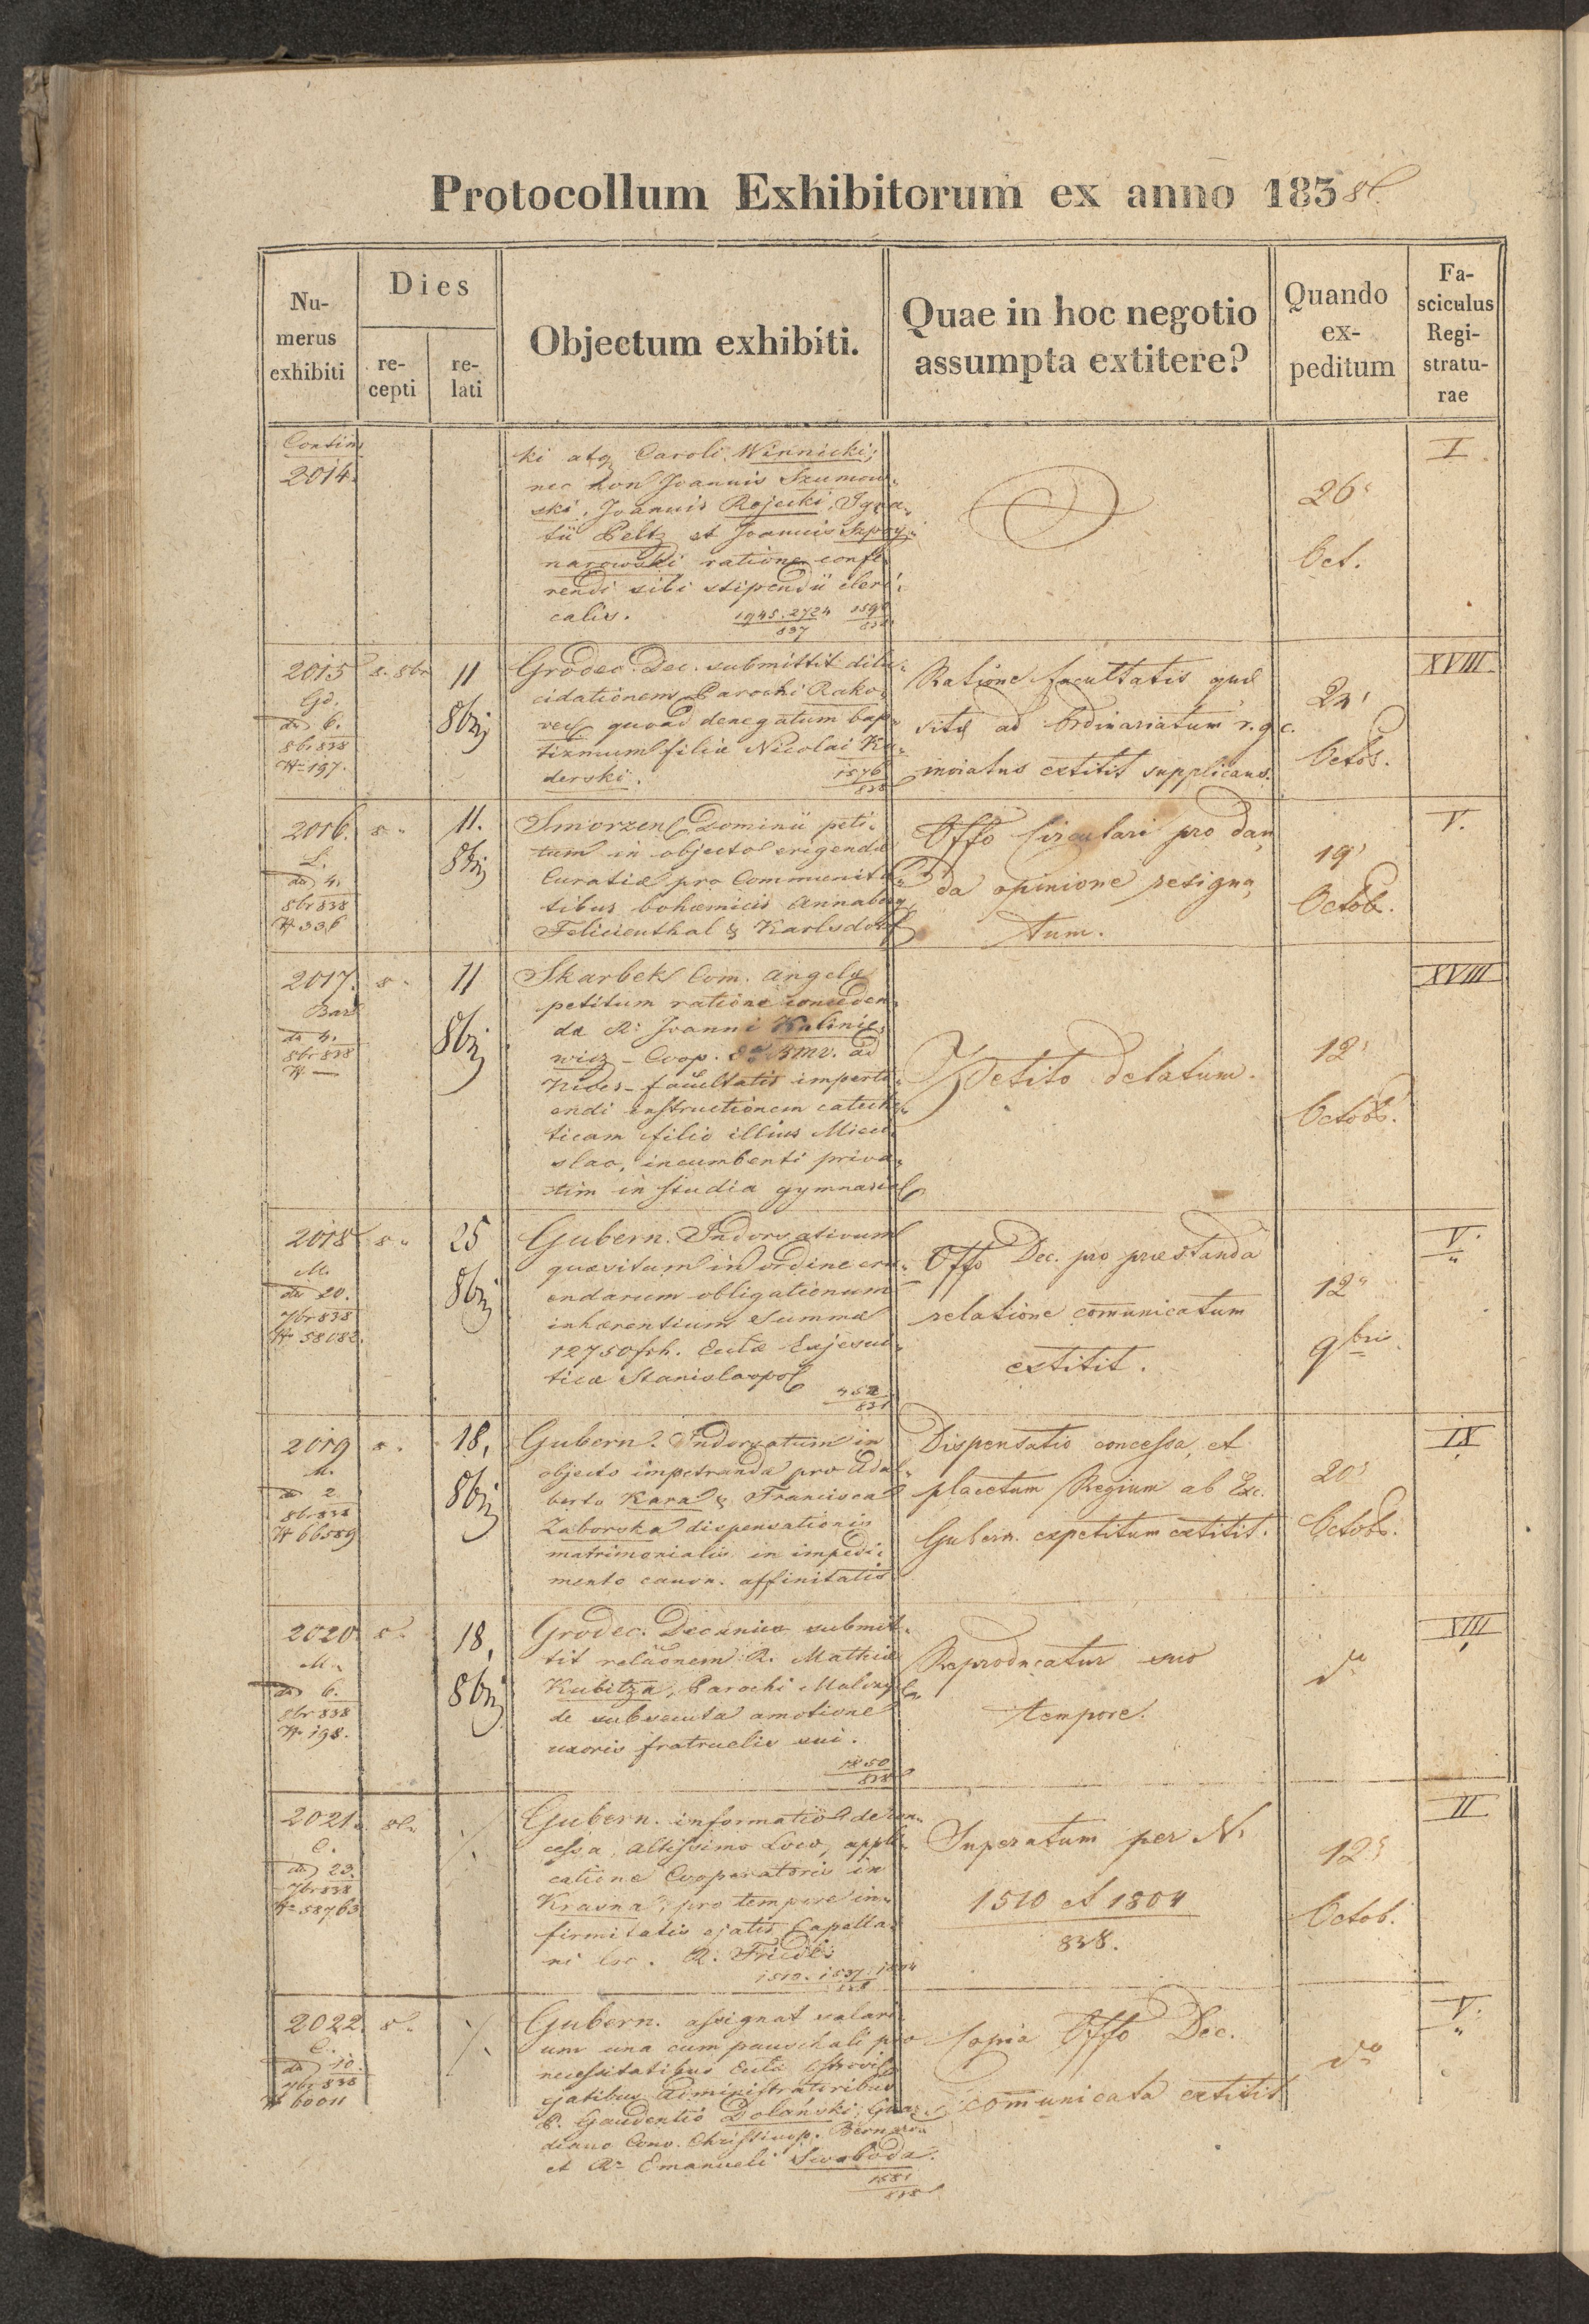 Protocollum Exhibitorum ex anno 1838.
Nu-
merus
exhibiti
Dies
re-
cepti
re-
lati
Objectum exhibiti.
Quae in hoc negotio
assumpta extitere?
Quando
ex-
peditum
Fa-
sciculus
Regi-
stratu-
rae
Contin.
2014.
ki atq Caroli Winnicki;
nec non Joannis Szumow-
ski, Joannis Rojecki, Igna-
tii Peltz et Joannis
narowski ratione confe-
rendi sibi stipendii cleri-
calis. 1945.2724 1590
837 838
26
Oct.
I
2015
Gd.
dto 6.
8br 838
N 197.
8. 8br
11
8bris
Grodec. Dec. submittit dilu-
cidationem Parochi Rako-
vec quoad denegatum bap-
tizmum filiae Nicolai Ku-
derski. 1576
838
Ratione facultatis quae
sitae ad Ordinariatum r. g. c.
inviatus extitit supplicans.
24
Octob.
XVIII
2016.
L.
dto 4.
8br 838
N 336
8 "
11.
8bris
Smorzen Dominii peti-
tum in objecto erigendae
Curatiae pro Communita-
tibus bohemicis Annaberg
Felicienthal & Karlsdorf
Offo Circulari pro dan-
da opinione resigna-
tum.
19
Octob.
V.
2017.
Bar
dto 4.
8br 838
N —
8 "
11
8bris
Skarbek Com. Angela
petitum ratione conceden-
da R. Joanni Kalinie-
wicz - Coop. ad BMV. ad
Nives - facultatis imperti-
endi instructionem cateche-
ticam filio illius Miecu-
slao, incumbenti priva-
tim in studia gymnasial
Petito delatum.
12
Octob.
XVIII
2018
M.
dto 20.
7br 838
N 58082.
8 "
25
8bris
Gubern. Indorsativum
quaesitum in ordine eru-
endarum obligationum
inhaerentium Summae
12750 frh. Eccltae Exjesui-
ticae Stanislaopol
452
831
Offo Dec. pro praestanda
relatione comunicatum
extitit.
12
9bris
V.
2019
M.
dto 2
8br 838
N 66589
8 "
18,
8bris
Gubern. Indorsatum in
objecto impetranda pro Adal-
berto Kara & Francisca
Zaborska dispensationis
matrimonialis in impedi-
mento canon. affinitatis
Dispensatio concessa, et
placetum Regium ab Exc.
Gubern. expetitum extitit.
20
Octob.
IX
2020
M.
dto 6.
8br 838
N 198.
8 "
18,
8bris
Grodec. Decanus submit-
tit relationem R. Mathiae
Kubitza, Parochi
de subsecuta amotione
uxoris fratruelis sui.
1850
838
Reproducatur suo
tempore.
dto
XIII
2021.
C.
dto 23.
7br 838
N 58763
8 "
./.
Gubern. informatio de con-
cessa Altissimo Loco, appli-
catione Cooperatoris in
Krasna, pro tempore in-
firmitatis ejatis Capella-
ni loc. R. Friedl.
1510. 1537. 1804
838
Superatum per N.
1510 et 1804
838.
12
Octob.
II
2022.
C.
dto 10.
7br 838
N 60011
8 "
./.
Gubern. assignat salari-
um una cum pauschali pro
necessitatibus Eccltae
ejatibus Administratoribus
P. Gaudentio Dolański, Guar-
diano Conv. Christinop. Bernard
et R. Emanueli Swoboda.
1681
838
Copia Offo Dec.
comunicata extitit
dto
V.